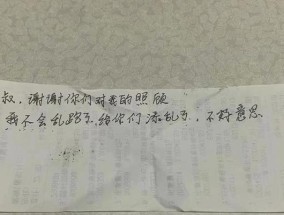 叔,谢谢你们对我的照顾
我不会乱跑了,给你们添乱了,不好意思